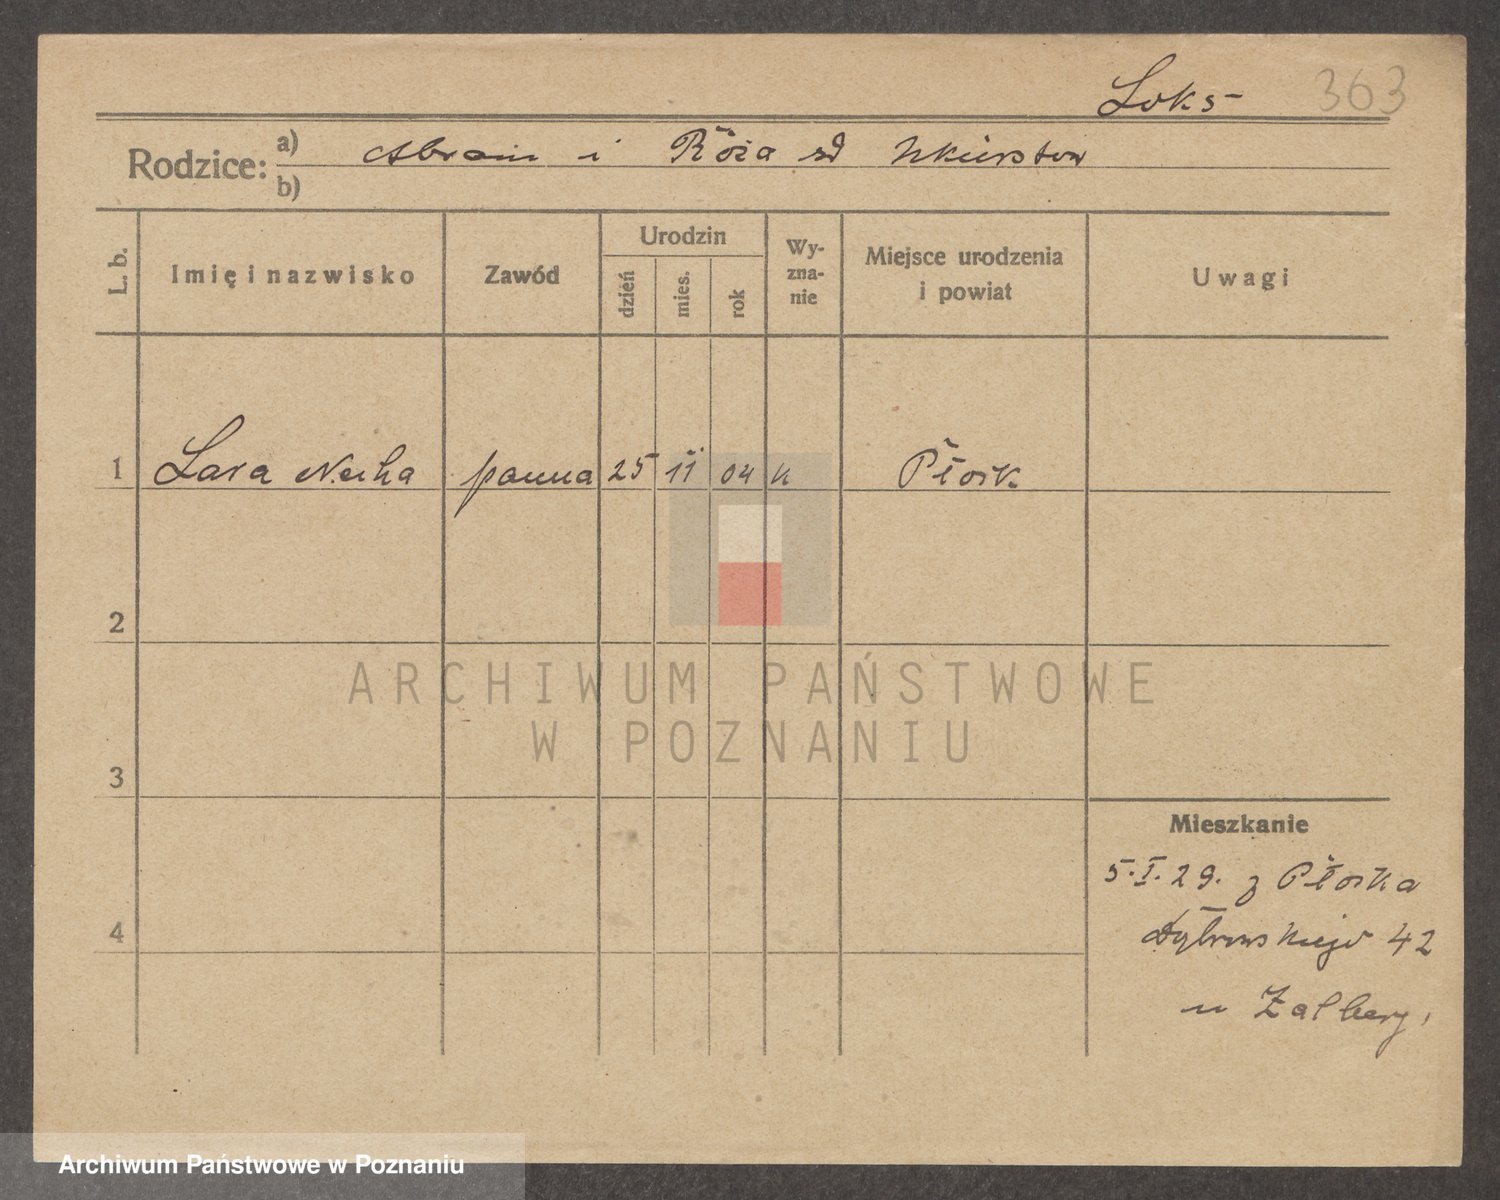 Loks 363
Rodzice: a) Abram i Róża zd
b)
L. b. Imię i nazwisko Zawód Urodzin dzień mies. rok Wyznanie Miejsce urodzenia i powiat Uwagi
1 Lara Necha panna 25 11 04 Płock
2
3
4
Mieszkanie
5.I.29. z Płocka
Dąbrowskiego 42
u Zalberg,
ARCHIWUM PAŃSTWOWE
W POZNANIU
Archiwum Państwowe w Poznaniu